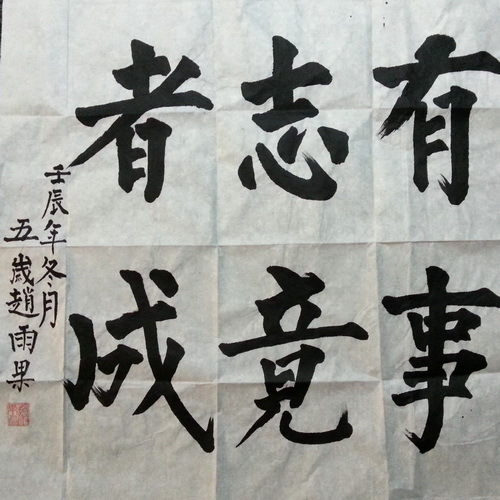 有志者
事竟成
壬辰年冬月
五歲趙雨果